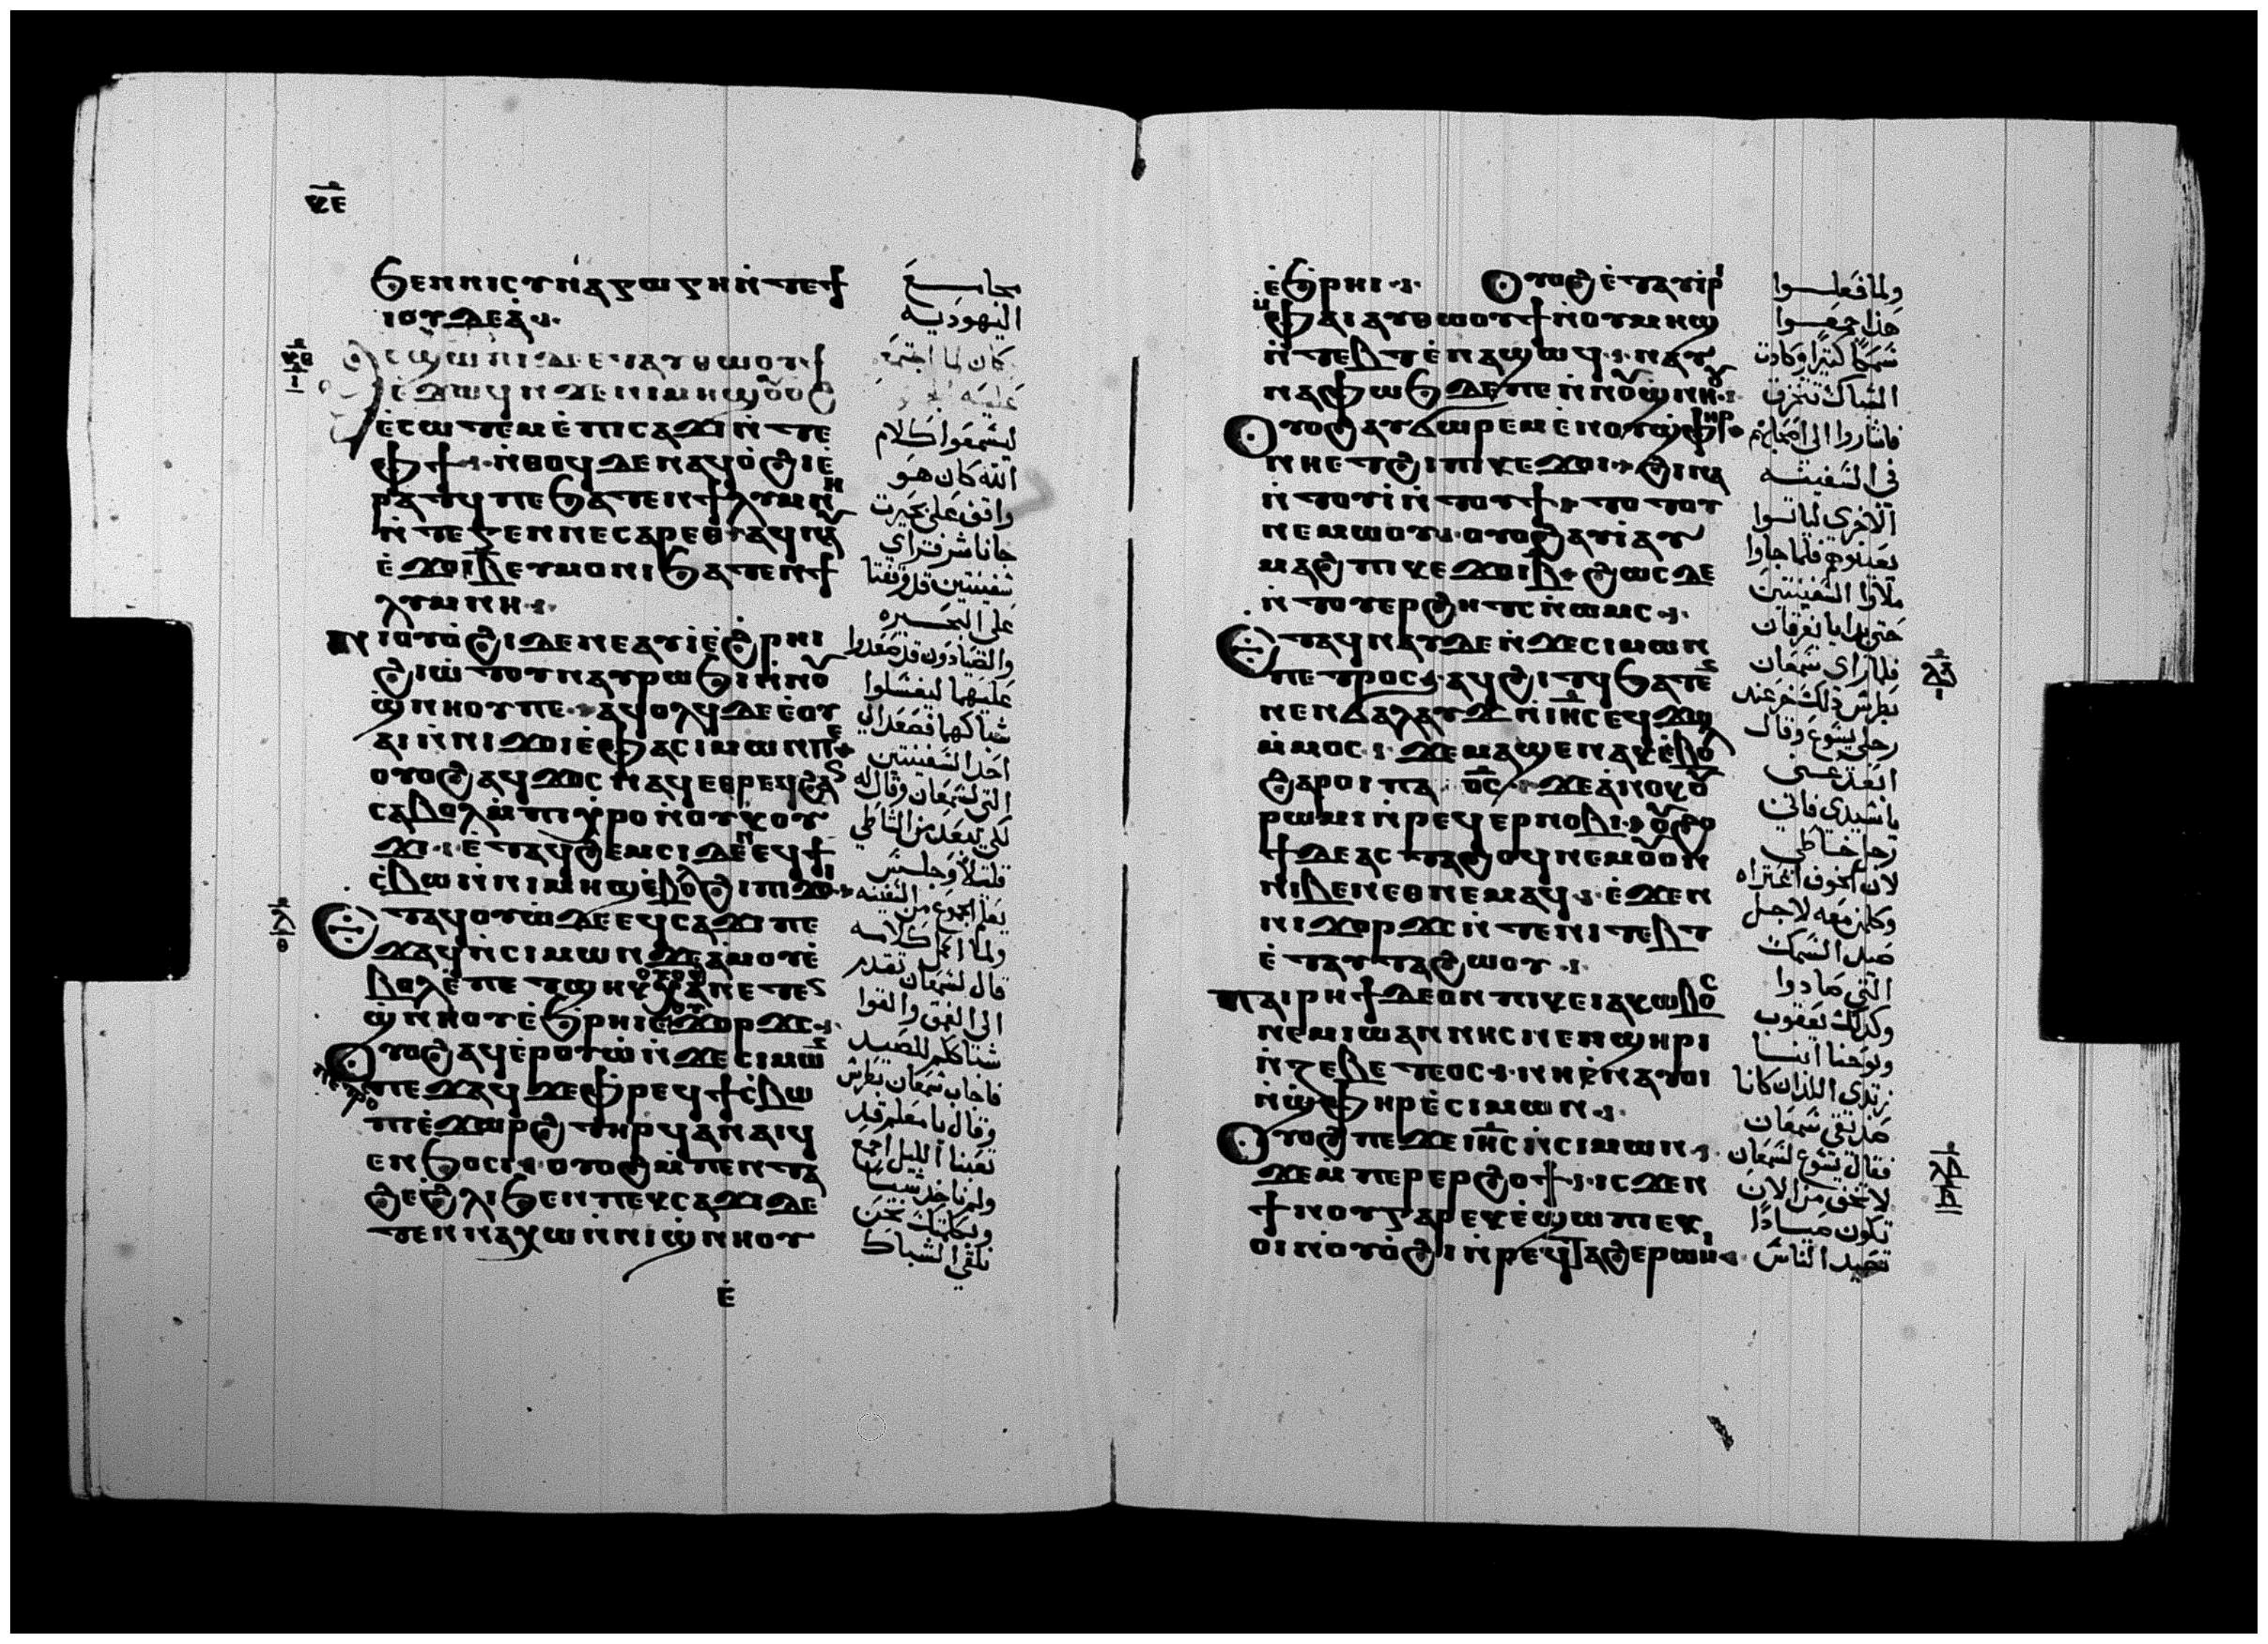 ϧⲉⲛⲛⲓⲥⲩⲛⲁⲅⲱⲅⲏⲛ̇ⲧⲉϯ
ⲓⲟⲩⲇⲉⲁ̇
ⲥϣⲱⲡⲓⲇⲉⲉⲧⲁⲩⲑⲱⲟⲩϯ
ⲉ̇ϫⲱϥⲛ̇ϫⲉⲛⲓⲙⲏϣⲟⲩⲟϩ
ⲉ̇ⲥⲱⲧⲉⲙⲉ̇ⲡⲓⲥⲁϫⲓⲛ̇ⲧⲉ
ⲫϯⲛ̇ⲑⲟϥⲇⲉⲛⲁϥⲟ̇ϩⲓⲉ̇
ⲣⲁⲧϥⲡⲉϧⲁⲧⲉⲛϯⲗⲩⲙⲛⲏ
ⲛ̇ⲧⲉⲅⲉⲛⲛⲉⲥⲁⲣⲉⲑⲁϥⲛⲁⲩ
ⲉ̇ϫⲟⲓⲃ̅ⲉⲩⲙⲟⲛⲓϧⲁⲧⲉⲛϯ
ⲗⲩⲙⲛⲏ
ⲛⲓⲟⲩⲟ̇ϩⲓⲇⲉⲛⲉⲁⲩⲓ̇ⲉ̇ϩ̇ⲣⲏⲓ
ϩⲓⲱ̇ⲧⲟⲩⲛⲁⲩⲣⲱϧⲓⲛ̇ⲛⲟⲩ
ϣ̇ⲛⲏⲟⲩⲡⲉⲁϥⲟⲗϥⲇⲉⲉ̇ⲟⲩ
ⲁⲓⲛ̇ⲛⲓϫⲟⲓⲉ̇ⲫⲁⲥⲓⲙⲱⲛⲡⲉ
ⲟⲩⲟϩⲁϥϫⲟⲥⲛⲁϥⲉⲑⲣⲉϥϩⲉⲛϥ
ⲥⲁⲃⲟⲗⲙ̇ⲡⲓⲭ̇ⲣⲟⲛ̇ⲟⲩⲕⲟⲩ
ϫⲓⲉ̇ⲧⲁϥϩⲉⲙⲥⲓⲇⲉⲛⲉϥϯ
ⲥ̇ⲃⲱⲛ̇ⲛⲓⲙⲏϣⲉ̇ⲃⲟⲗϩⲓⲡⲓϫⲟⲓ
ⲉⲧⲁϥⲟⲩⲱ̇ⲇⲉⲉϥⲥⲁϫⲓⲡⲉ
ϫⲁϥⲛ̇ⲥⲓⲙⲱⲛϫⲉⲁ̇ⲙⲟⲩⲉ̇
ⲃⲟⲗⲉ̇ⲡⲉⲧϣⲏⲕⲟⲩⲟϩⲭⲁⲛⲉⲧⲉⲛ
ϣ̇ⲛⲏⲟⲩⲉ̇ϧⲣⲏⲓⲉⲩϫⲟⲣϫⲥ
ⲟⲩⲟϩⲁϥⲉ̇ⲣⲟⲩⲱ̇ⲛ̇ϫⲉⲥⲓⲙⲱⲛ
ⲡⲉϫⲁϥϫⲉⲫ̇ⲣⲉϥϯⲥ̇ⲃⲱ
ⲡⲓⲉ̇ϫⲱⲣϩⲧⲏⲣϥⲁⲛⲁⲓϥ
ⲉⲛϧⲟⲥⲓⲟⲩⲟϩⲙ̇ⲡⲉⲛⲧⲁ
ϩⲉϩ̇ⲗⲓϧⲉⲛⲡⲉⲕⲥⲁϫⲓⲇⲉ
ⲧⲉⲛⲛⲁⲭⲱⲛ̇ⲛⲓϣ̇ⲛⲏⲟⲩ
ⲉ̇
مجامع
اليهوديه
كان لما اجتمع
ليسمعوا كلام
الله كان هو
واقف على بحيرت
جاناشر فراي
سفينتين قد وقفتا
على البحيره
والصيادون قد صعدوا
عليهما ليغسلوا
شباكهما فصعد الى
احد السفينتين
التي لسمعان وقال له
لكي يبعد من الشاطي
قليلا وجلس
يعلم الجموع من السفينه
ولما اكمل كلامه
قال لسمعان تقدم
الى العمق والقوا
شباككم للصيد
فاجاب سمعان بطرس
وقال يا معلم قد
تعبنا الليل اجمع
ولم ناخذ شيا
وبكلمتك نحن
نلقي الشباك
ⲉ̇ϧⲣⲏⲓ ⲟⲩⲟϩⲉ̇ⲧⲁⲩⲓ̇ⲣⲓ
ⲙ̇ⲫⲁⲓⲁⲩⲑⲱⲟⲩϯⲛ̇ⲟⲩⲙⲏϣ
ⲛ̇ⲧⲉⲃⲧⲉ̇ⲛⲁϣⲱϥⲛⲁⲩ
ⲛⲁⲫⲱϧⲇⲉⲡⲉⲛ̇ⲛⲟⲩϣ̇ⲛⲏⲟⲩ
ⲟⲩⲟϩⲁⲩϭⲱⲣⲉⲙⲉ̇ⲛⲟⲩϣ̇ⲫⲏⲣ
ⲛⲏⲉⲧϩⲓⲡⲓⲕⲉϫⲟⲓϩⲓⲛⲁ
ⲛ̇ⲧⲟⲩⲓ̇ⲛ̇ⲧⲟⲩϯⲧⲟⲧⲟⲩ
ⲛⲉⲙⲱⲟⲩⲟⲩⲟϩⲁⲩⲓ̇ⲁⲩ
ⲙⲁϩⲡⲓⲕⲉϫⲟⲓⲃ̅ϩⲱⲥⲇⲉ
ⲛ̇ⲧⲟⲩⲉⲣϩⲏⲧⲥⲛ̇ⲱⲙⲥ
ⲉⲧⲁϥⲛⲁⲩⲇⲉⲛ̇ϫⲉⲥⲓⲙⲱⲛ
ⲡⲉⲧⲣⲟⲥⲁϥϩⲓⲧϥϧⲁⲧⲉⲛ
ⲛⲉⲛϭⲁⲗⲁⲩϫⲛ̇ⲓⲏ̅ⲥⲉϥϫⲱ
ⲙ̇ⲙⲟⲥϫⲉⲙⲁϣⲉⲛⲁⲕⲉ̇ⲃⲟⲗ
ϩⲁⲣⲟⲓⲡⲁⲟ̅ⲥ̅ϫⲉⲁ̇ⲛⲟⲕⲟⲩ
ⲣⲱⲙⲓⲛ̇ⲣⲉϥⲉⲣⲛⲟⲃⲓⲟⲩϩⲟ
ϯⲇⲉⲁⲥⲧⲁϩⲟϥⲛⲉⲙⲟⲩⲟⲛ
ⲛⲓⲃⲉⲛⲉⲑⲛⲉⲙⲁϥⲉ̇ϫⲉⲛ
ⲛⲓϫⲟⲣϫⲥⲛ̇ⲧⲉⲛⲓⲧⲉⲃⲧ
ⲉ̇ⲧⲁⲩⲧⲁϩⲱⲟⲩ
ⲡⲁⲓⲣⲏϯⲇⲉⲟⲛⲡⲓⲕⲉⲓⲁⲕⲱⲃⲟⲥ
ⲛⲉⲙⲓⲱⲁⲛⲛⲏⲥⲛⲉⲛϣⲏⲣⲓ
ⲛ̇ⲍⲉⲃⲉⲇⲉⲟⲥⲛⲏⲉ̇ⲛⲁⲩⲟⲓ
ⲛ̇ϣ̇ⲫⲏⲣⲉ̇ⲥⲓⲙⲱⲛ
ⲟⲩⲟϩⲡⲉϫⲉⲓⲏ̅ⲥⲛ̇ⲥⲓⲙⲱⲛ
ϫⲉⲙ̇ⲡⲉⲣⲉⲣϩⲟϯⲓⲥϫⲉⲛ
ϯⲛⲟⲩⲅⲁⲣⲉⲕⲉ̇ϣⲱⲡⲓⲉⲕ
ⲟⲓⲛ̇ⲟⲩⲟ̇ϩⲓⲛ̇ⲣⲉϥⲧⲁϩⲉⲣⲱⲙⲓ
ولما فعلوا
هذا جمعوا
سمكا كثيرا وكادت
الشباك تتخرق
فاشاروا الى اصحابهم
في السفينه
الاخرى لياتوا
يعينوهم فلما جاوا
ملاوا السفينتين
حتى بدايا يغرقان
فلما راى سمعان
بطرس ذلك خر عند
رجلي يسوع وقال
ابعد عني
يا سيدي فاني
رجل خاطي
لان الخوف اعتراه
وكلمن معه لاجل
صيد السمك
التي صادوا
وكذلك يعقوب
ويوحنا ابنا
زبدى اللذان كانا
صديقي سمعان
فقال يسوع لسمعان
لا تخف من الان
تكون صيادا
تصيد الناس